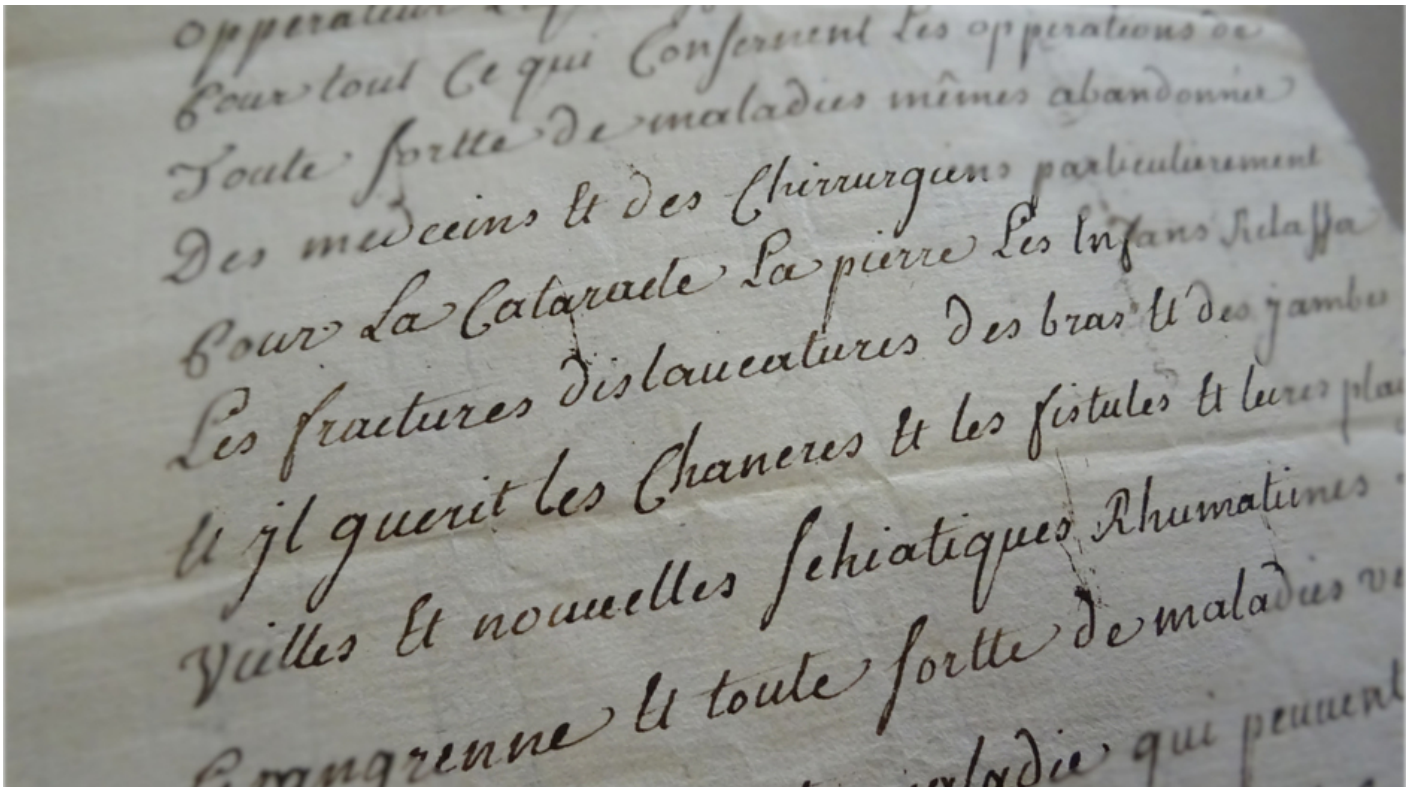 opperateur
pour tout Ce qui Consernent Les opperations de
Toute sortte de maladies mêmes abandonnér
Des medecins Et des Chirrurgiens particulierement
pour La Cataracte La pierre Les Infans Relassa
Les fractures dislaucatures des bras Et des jambes
Et jl guerit les Chancres Et les fistules Et lures
Vielles Et nouuelles schiatiques Rhumatimes
Grangrenne Et toute sortte de maladies
maladie qui peuuent